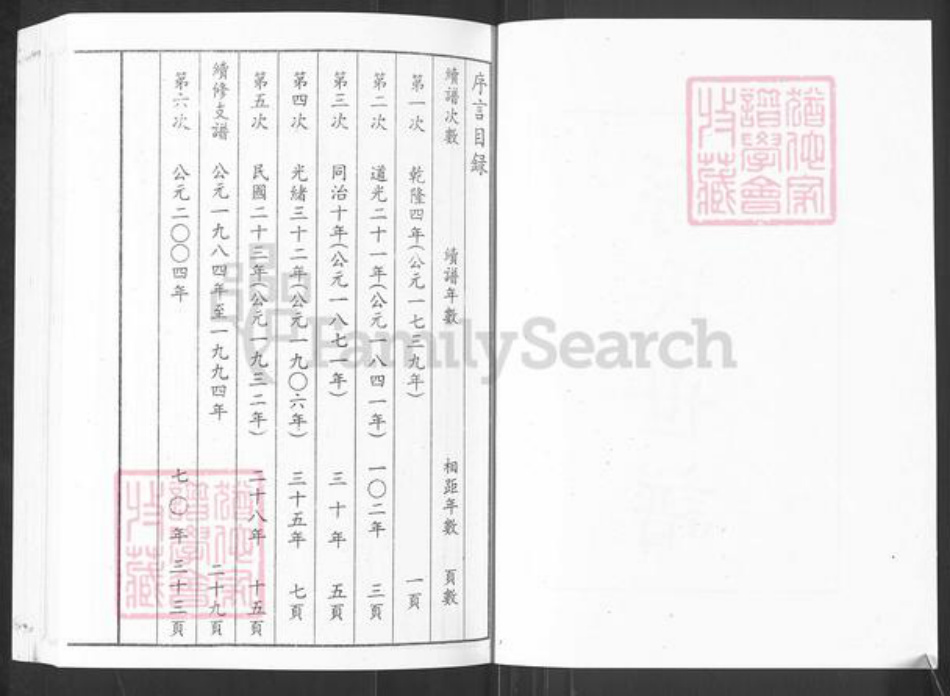 序言目録
續譜次數 續譜年數 相距年數 頁數
第一次 乾隆四年(公元一七三九年) 一頁
第二次 道光二十一年(公元一八四一年) 一〇二年 三頁
第三次 同治十年(公元一八七一年) 三十年 五頁
第四次 光緒三十二年(公元一九〇六年) 三十五年 七頁
第五次 民國二十三年(公元一九三二年) 二十八年 十五頁
續修支譜 公元一九八四年至一九九四年 二十九頁
第六次 公元二〇〇四年 七〇年 三十三頁
譜學會
收藏
FamilySearch